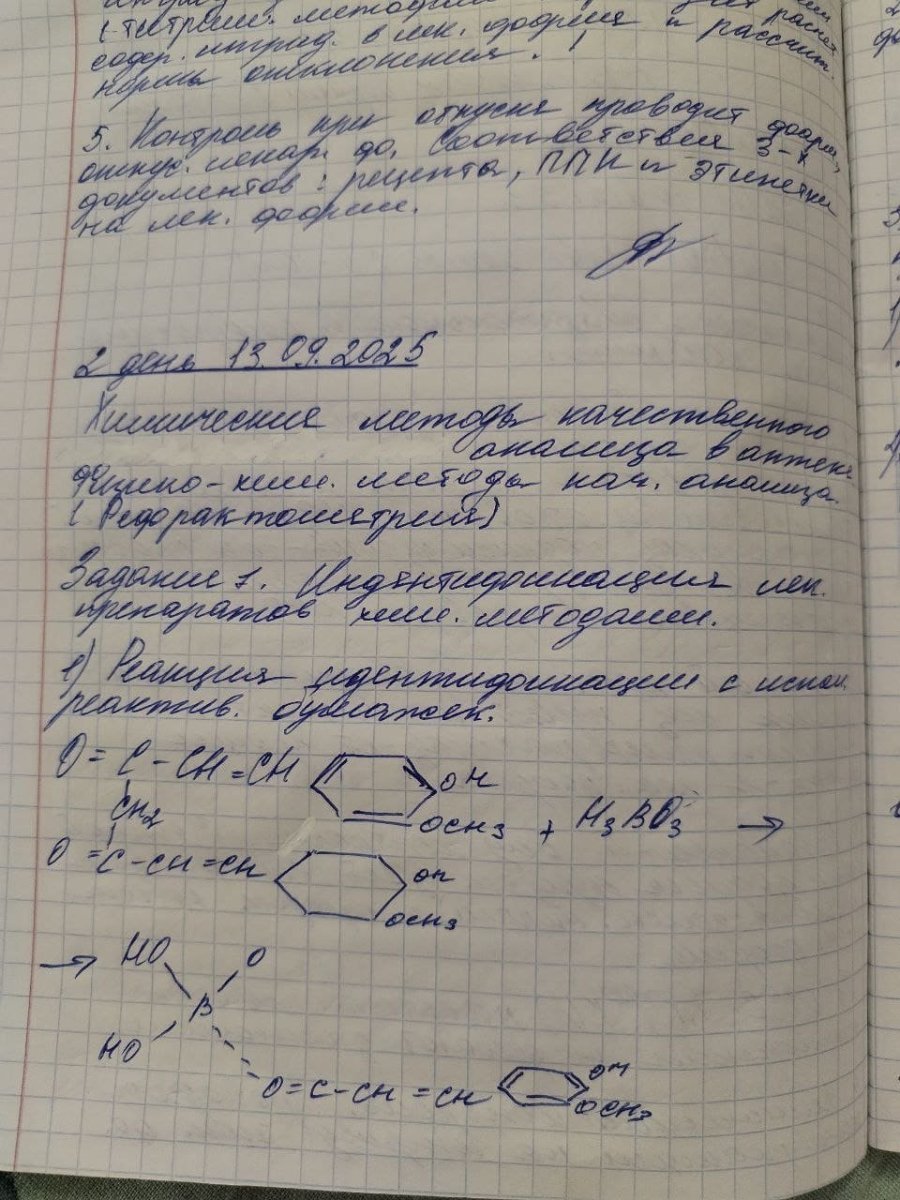 содер. ингред. в лек. форме и рассчит.
нормы отклонения.
5. Контроль при отпуске проводит фарм,
отпус. лекар. ф. Соответствия 3-х
документов: рецепта, ППК и этикетки
на лек. форме.
2 день 13.09.2025
Химические методы качественного
анализа в аптеке
Физико-хим. методы кач. анализа.
(Рефрактометрия)
Задание 1. Индентификация лек.
препаратов хим. методами.
1) Реакция идентификации с испол.
реактив. бумажек.
O = C - CH = CH OH
CH2 OCH3 + H3BO3 →
O = C - CH = CH OH
OCH3
→ HO O
B
HO
O = C - CH = CH OH
OCH3